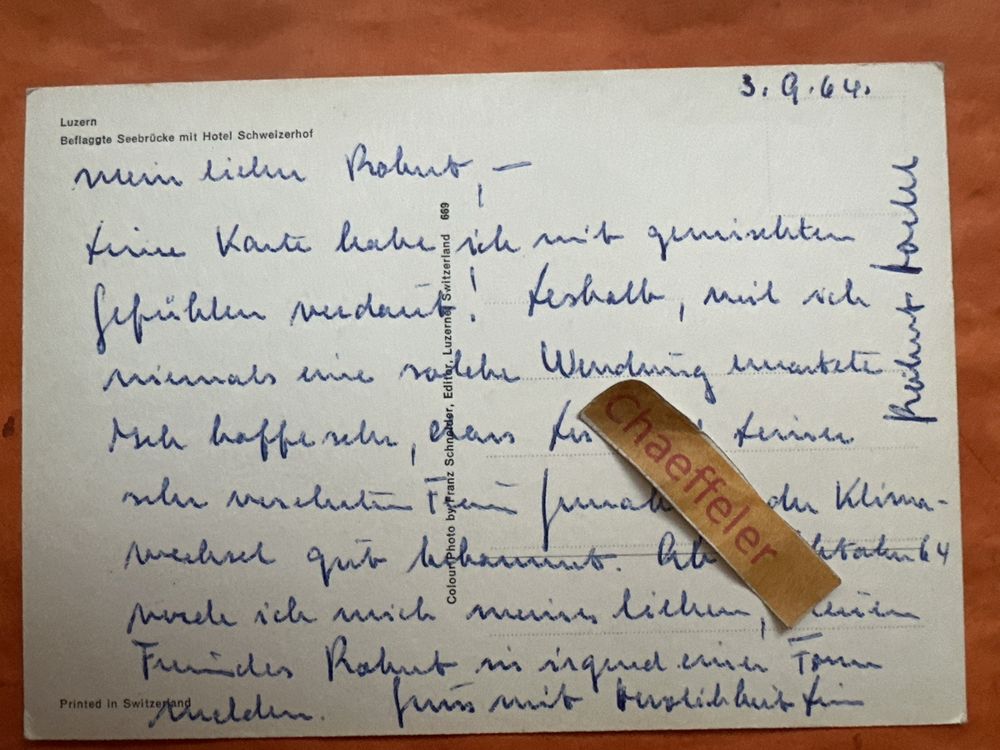 3.9.64.
Luzern
Beflaggte Seebrücke mit Hotel Schweizerhof
Mein lieber Robert, —
Deine Karte habe ich mit gemischten
Gefühlen verdaut! Deshalb, weil ich
niemals eine solche Wendung erwartete
Ich hoffe sehr, dass Deiner
sehr verehrten Frau der Klima-
wechsel gut bekommt. 64
werde ich mich meines lieben,
Freundes Robert in irgend einer Form
melden. Gruss mit Herzlichkeit Dein
Robert
Chaeffeler
Colour Photo by Franz Schneider, Editor, Luzerne/Switzerland 669
Printed in Switzerland